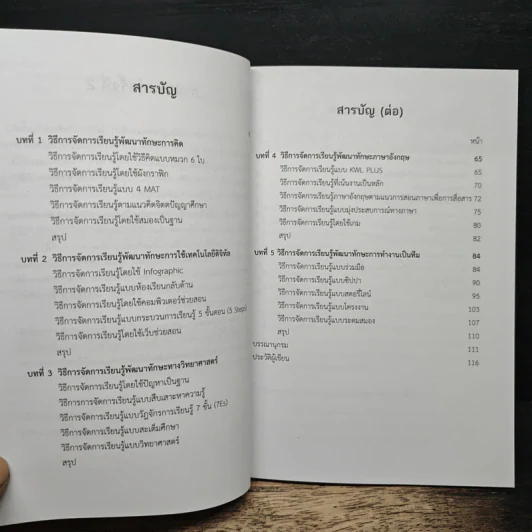 สารบัญ
บทที่ 1 วิธีการจัดการเรียนรู้พัฒนาทักษะการคิด
วิธีการจัดการเรียนรู้โดยใช้วิธีคิดแบบหมวก 6 ใบ
วิธีการจัดการเรียนรู้โดยใช้ผังกราฟิก
วิธีการจัดการเรียนรู้แบบ 4 MAT
วิธีการจัดการเรียนรู้ตามแนวคิดจิตตปัญญาศึกษา
วิธีการจัดการเรียนรู้โดยใช้สมองเป็นฐาน
สรุป
บทที่ 2 วิธีการจัดการเรียนรู้พัฒนาทักษะการใช้เทคโนโลยีดิจิทัล
วิธีการจัดการเรียนรู้โดยใช้ Infographic
วิธีการจัดการเรียนรู้แบบห้องเรียนกลับด้าน
วิธีการจัดการเรียนรู้โดยใช้คอมพิวเตอร์ช่วยสอน
วิธีการจัดการเรียนรู้แบบกระบวนการเรียนรู้ 5 ขั้นตอน (5 Steps)
วิธีการจัดการเรียนรู้โดยใช้เว็บช่วยสอน
สรุป
บทที่ 3 วิธีการจัดการเรียนรู้พัฒนาทักษะทางวิทยาศาสตร์
วิธีการจัดการเรียนรู้โดยใช้ปัญหาเป็นฐาน
วิธีการการจัดการเรียนรู้แบบสืบเสาะหาความรู้
วิธีการจัดการเรียนรู้แบบวัฏจักรการเรียนรู้ 7 ขั้น (7Es)
วิธีการจัดการเรียนรู้แบบสะเต็มศึกษา
วิธีการจัดการเรียนรู้แบบวิทยาศาสตร์
สรุป
สารบัญ (ต่อ)
หน้า
บทที่ 4 วิธีการจัดการเรียนรู้พัฒนาทักษะภาษาอังกฤษ 65
วิธีการจัดการเรียนรู้แบบ KWL PLUS 65
วิธีการจัดการเรียนรู้ที่เน้นงานเป็นหลัก 70
วิธีการจัดการเรียนรู้ภาษาอังกฤษตามแนวการสอนภาษาเพื่อการสื่อสาร 72
วิธีการจัดการเรียนรู้แบบมุ่งประสบการณ์ทางภาษา 75
วิธีการจัดการเรียนรู้โดยใช้เกม 80
สรุป 82
บทที่ 5 วิธีการจัดการเรียนรู้พัฒนาทักษะการทำงานเป็นทีม 84
วิธีการจัดการเรียนรู้แบบร่วมมือ 84
วิธีการจัดการเรียนรู้แบบซิปปา 90
วิธีการจัดการเรียนรู้แบบสตอรี่ไลน์ 95
วิธีการจัดการเรียนรู้แบบโครงงาน 103
วิธีการจัดการเรียนรู้แบบระดมสมอง 107
สรุป 110
บรรณานุกรม 111
ประวัติผู้เขียน 116